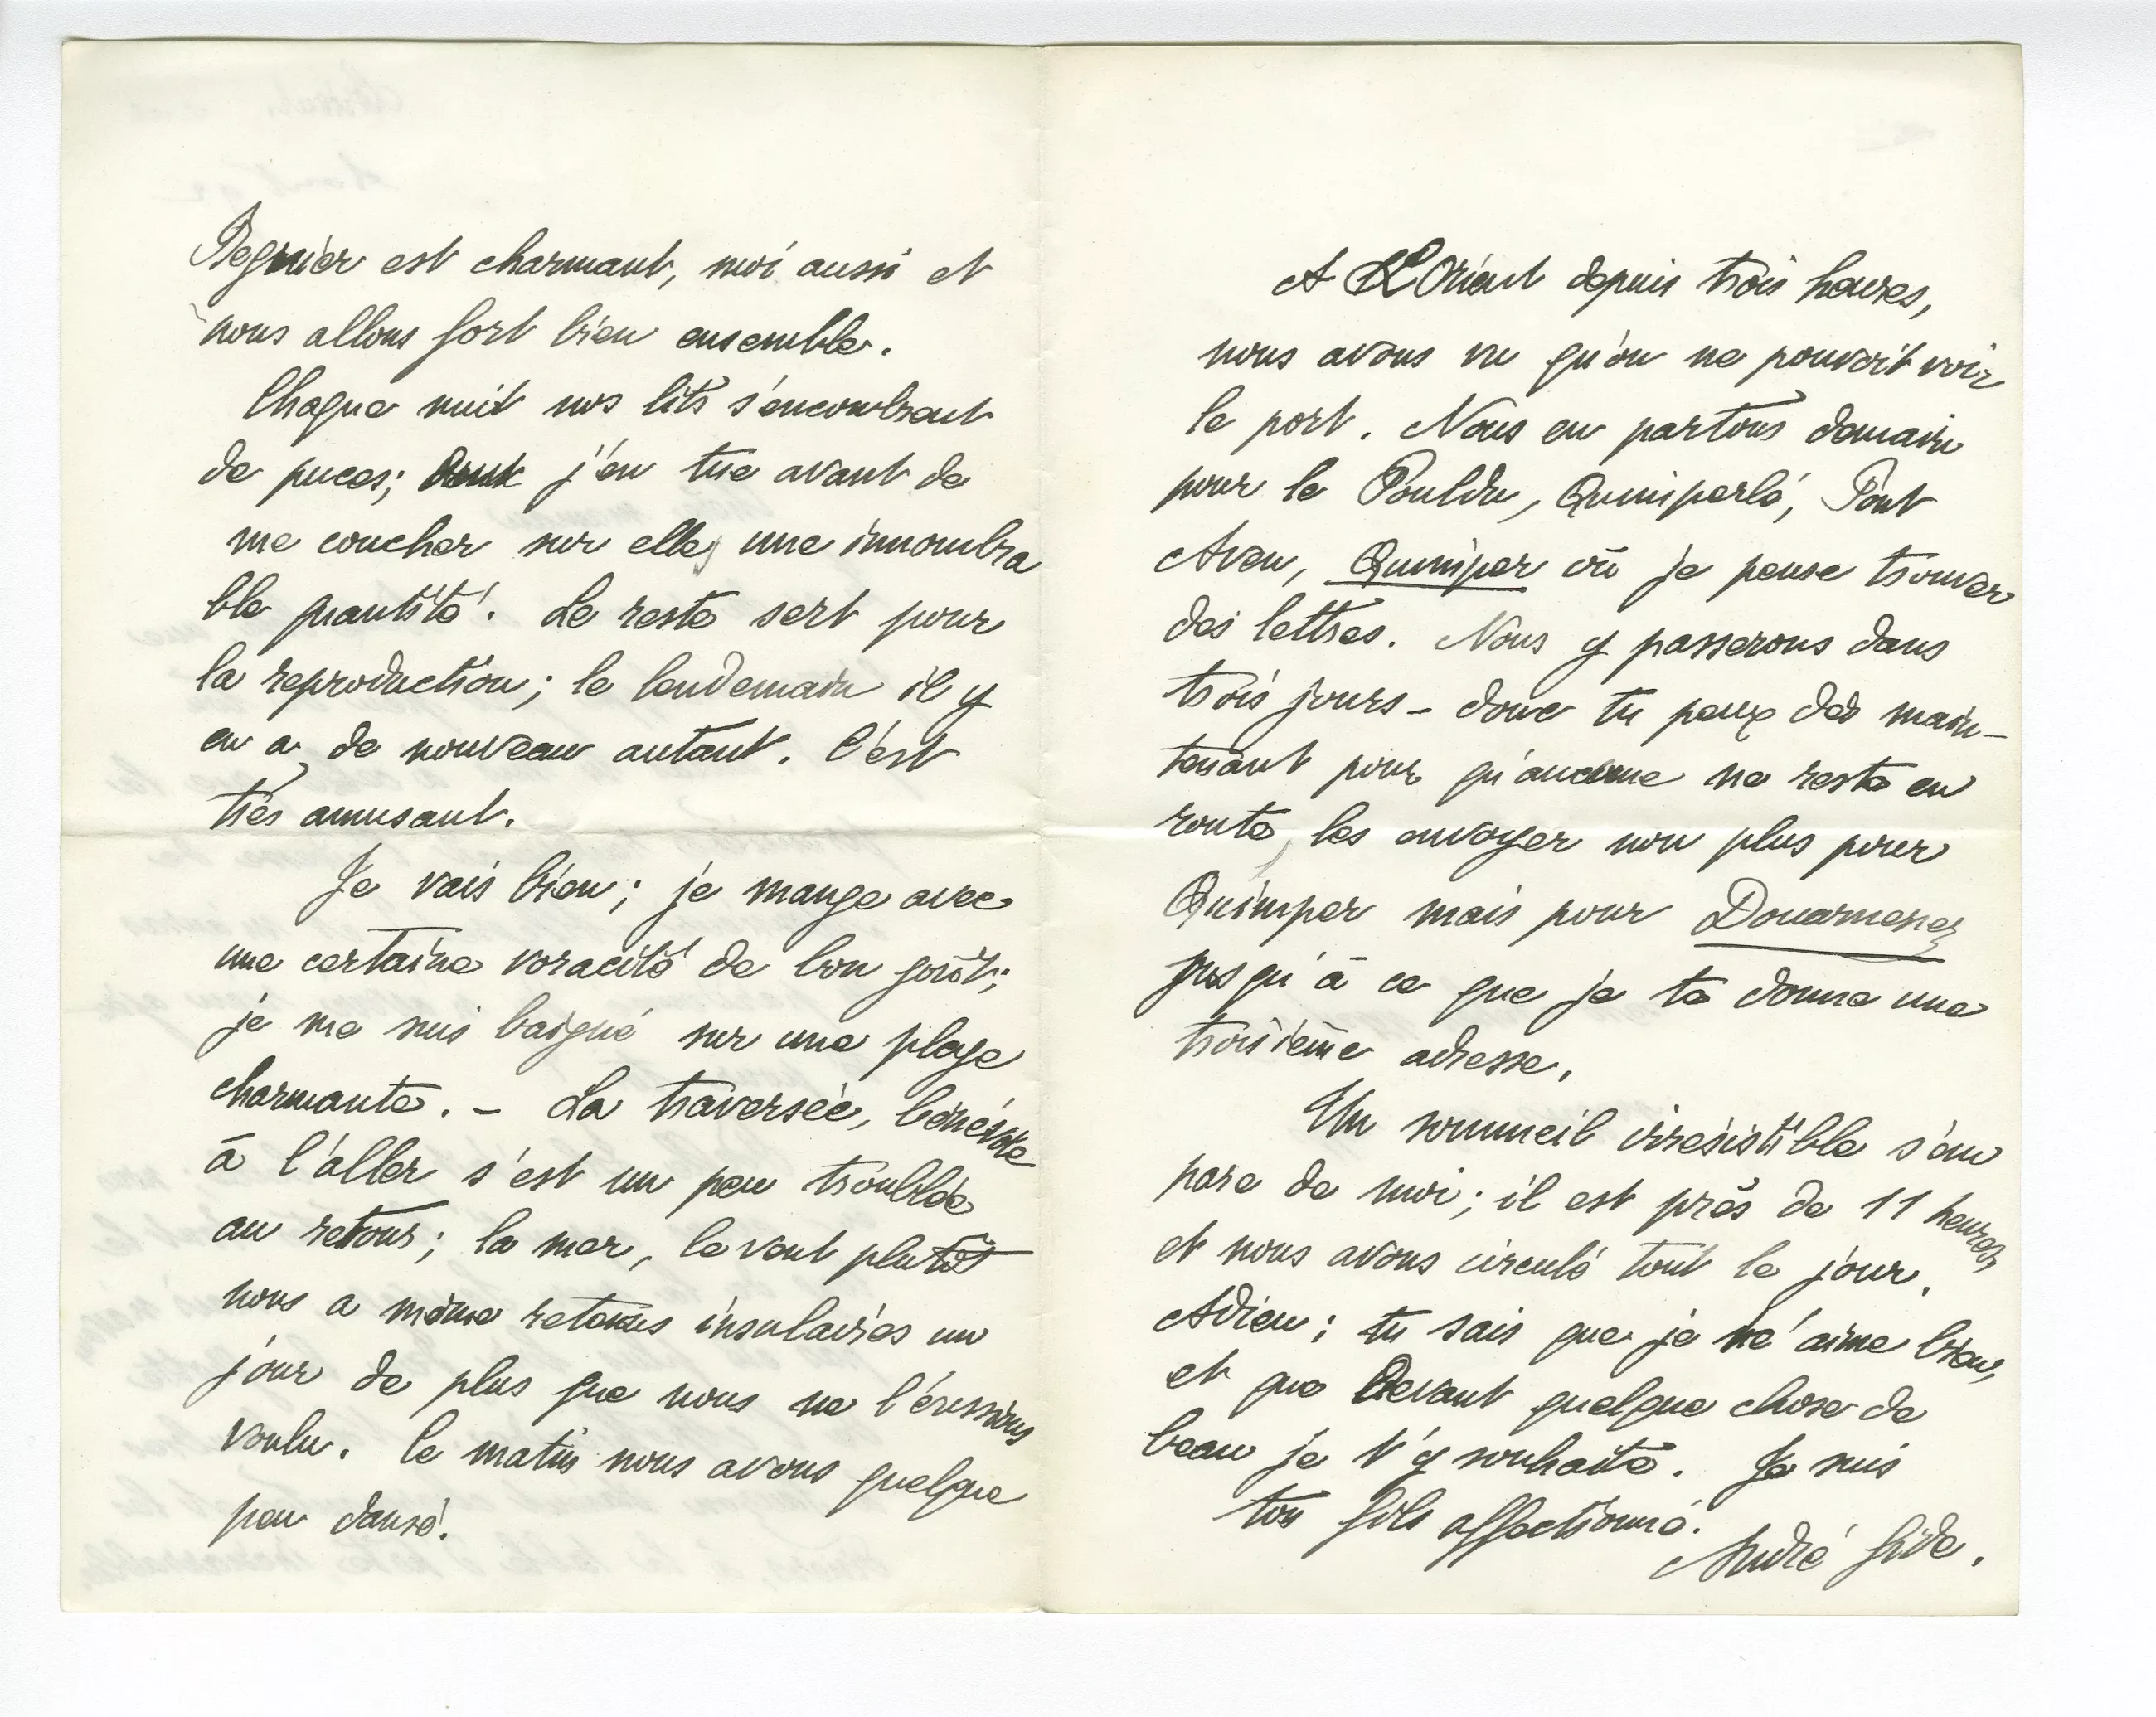 Regnier est charmant, moi aussi et
nous allons fort bien ensemble.
Chaque nuit nos lits s'encombrent
de puces; j'en tue avant de
me coucher sur elles une innombra
ble quantité. Le reste sert pour
la reproduction; le lendemain il y
en a de nouveau autant. C'est
très amusant.
Je vais bien; je mange avec
une certaine voracité de bon goût;
je me suis baigné sur une plage
charmante. – La traversée, bénévole
à l'aller s'est un peu troublée
au retour; la mer, le vent plutôt
nous a même retenus insulaires un
jour de plus que nous ne l'eussions
voulu. Le matin nous avons quelque
peu dansé.
A L'Orient depuis trois heures,
nous avons vu qu'on ne pouvait voir
le port. Nous en partons demain
pour le Pouldu, Quimperlé, Pont
Aven, Quimper où je pense trouver
des lettres. Nous y passerons dans
trois jours – donc tu peux dès main–
tenant pour qu'aucune ne reste en
route, les envoyer non plus pour
Quimper mais pour Douarnenez
jusqu'à ce que je te donne une
troisième adresse.
Un sommeil irrésistible s'em
pare de moi; il est près de 11 heures
et nous avons circulé tout le jour.
Adieu; tu sais que je t'aime bien,
et que devant quelque chose de
beau je t'y souhaite. Je suis
ton fils affectionné.
André Gide.